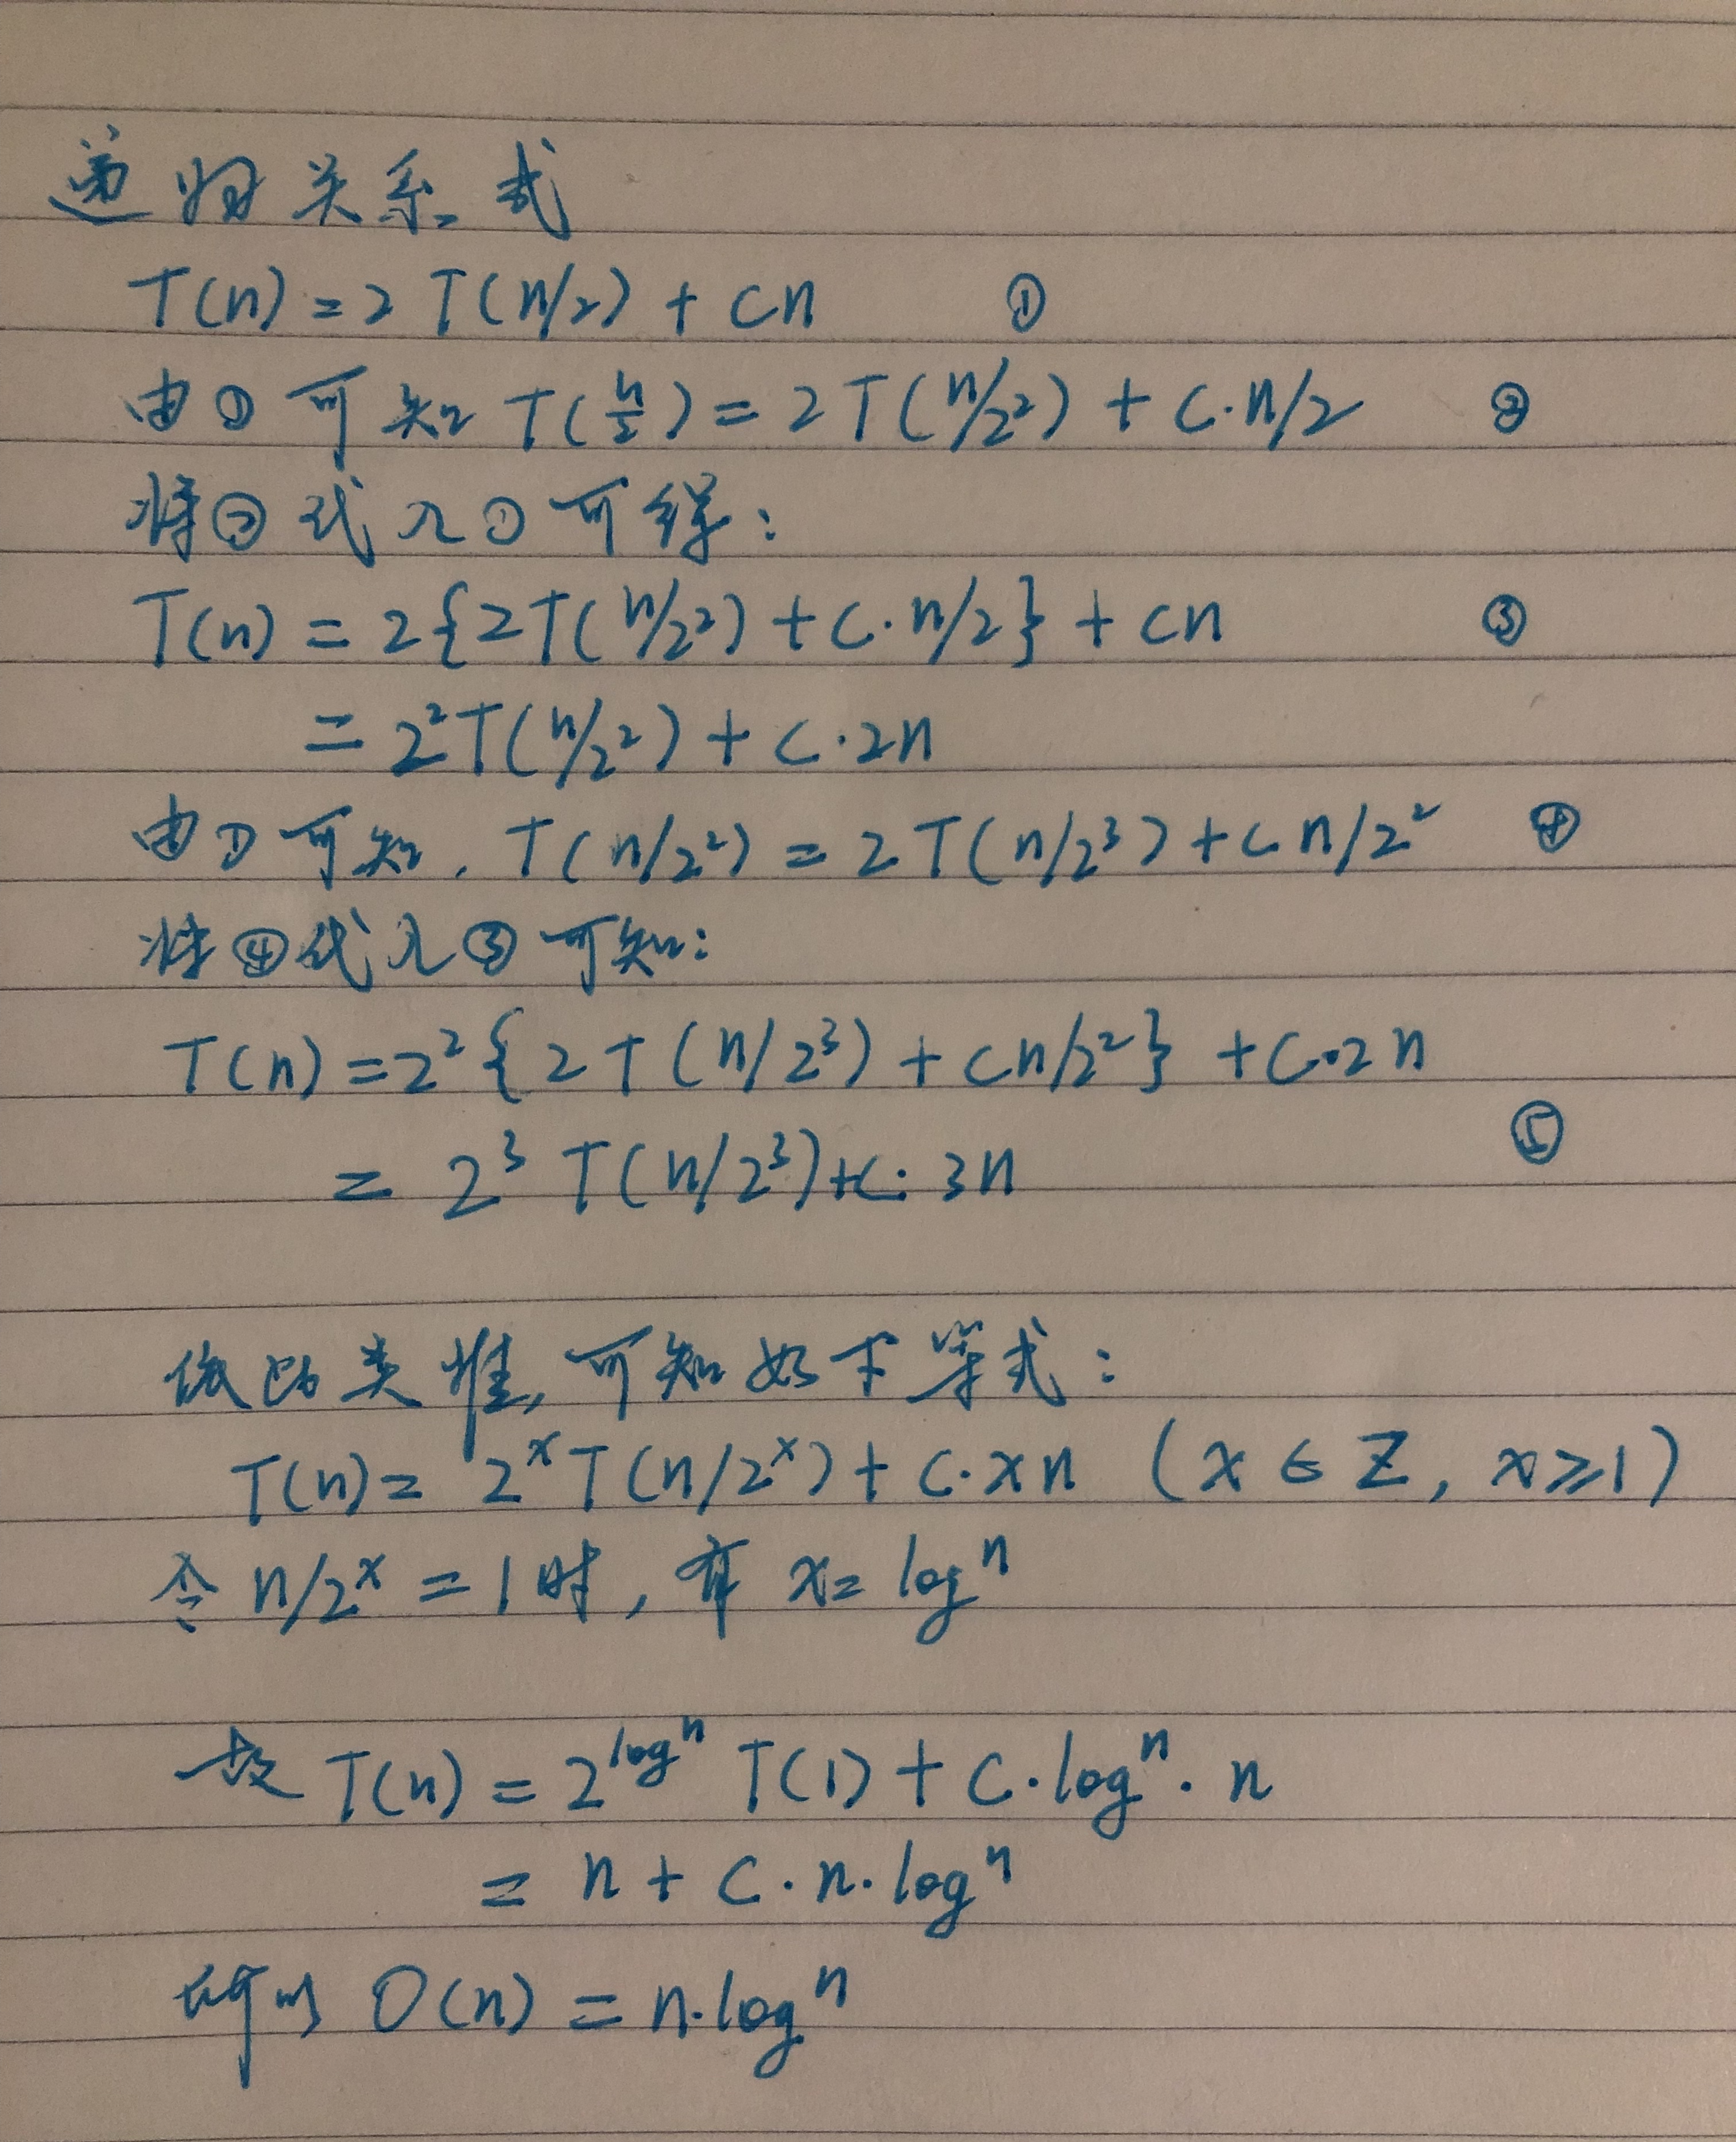 递归关系式
T(n) = 2 T(n/2) + cn ①
由①可知 T(n/2) = 2T(n/2²) + c·n/2 ②
将②代入①可得:
T(n) = 2{2T(n/2²) + c·n/2} + cn ③
= 2²T(n/2²) + c·2n
由①可知, T(n/2²) = 2T(n/2³) + cn/2² ④
将④代入③可知:
T(n) = 2²{2T(n/2³) + cn/2²} + c·2n
= 2³ T(n/2³) + c·3n ⑤
依此类推,可知如下等式:
T(n) = 2ˣT(n/2ˣ) + c·xn (x∈Z, x≥1)
令 n/2ˣ = 1时, 有 x = logⁿ
故 T(n) = 2^logⁿ T(1) + c·logⁿ·n
= n + c·n·logⁿ
所以 O(n) = n·logⁿ